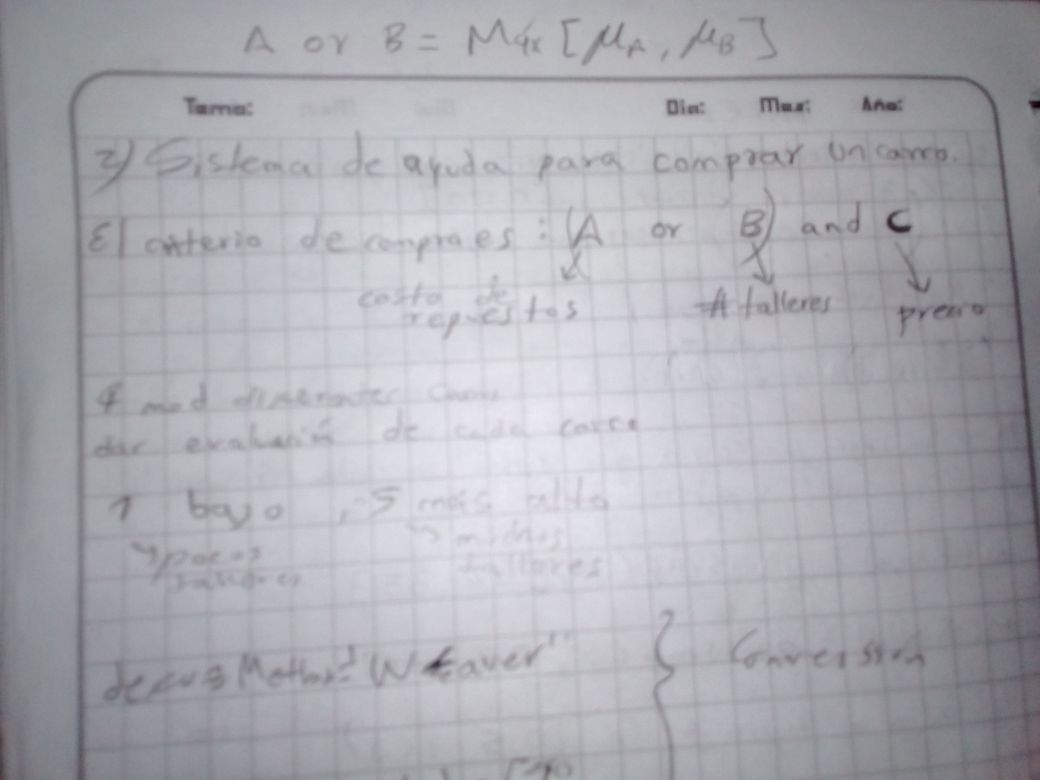 A or B = Máx [μA, μB]
Tema: Dia: Mes: Año:
2) Sistema de ayuda para comprar un carro.
El criterio de compra es: (A or B) and C
costo de # talleres precio
repuestos
4 mod diferentes
dar evaluación de cada carro
1 bajo, 5 más alto
pocos muchos
talleres talleres
Weaver" } Conversión